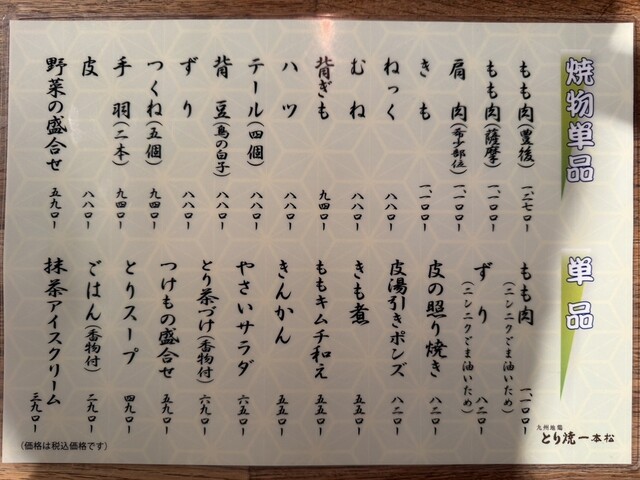 焼物単品
もも肉(豊後) 一、二七〇ー
もも肉(薩摩) 一、一〇〇ー
肩肉(希少部位) 一、一〇〇ー
きも 一、一〇〇ー
ねっく 八八〇ー
むね 八八〇ー
背ぎも 九四〇ー
ハツ 八八〇ー
テール(四個) 八八〇ー
背豆(鳥の白子) 八八〇ー
ずり 八八〇ー
つくね(五個) 九四〇ー
手羽(二本) 九四〇ー
皮 八八〇ー
野菜の盛合せ 五九〇ー
単品
もも肉(ニンニクごま油いため) 一、一〇〇ー
ずり(ニンニクごま油いため) 八二〇ー
皮の照り焼き 八二〇ー
皮湯引きポンズ 八二〇ー
きも煮 五五〇ー
ももキムチ和え 五五〇ー
きんかん 五五〇ー
やさいサラダ 六五〇ー
とり茶づけ(香物付) 六九〇ー
つけもの盛合せ 五九〇ー
とりスープ 四九〇ー
ごはん(香物付) 二九〇ー
抹茶アイスクリーム 三九〇ー
(価格は税込価格です)
九州地鶏
とり焼一本松